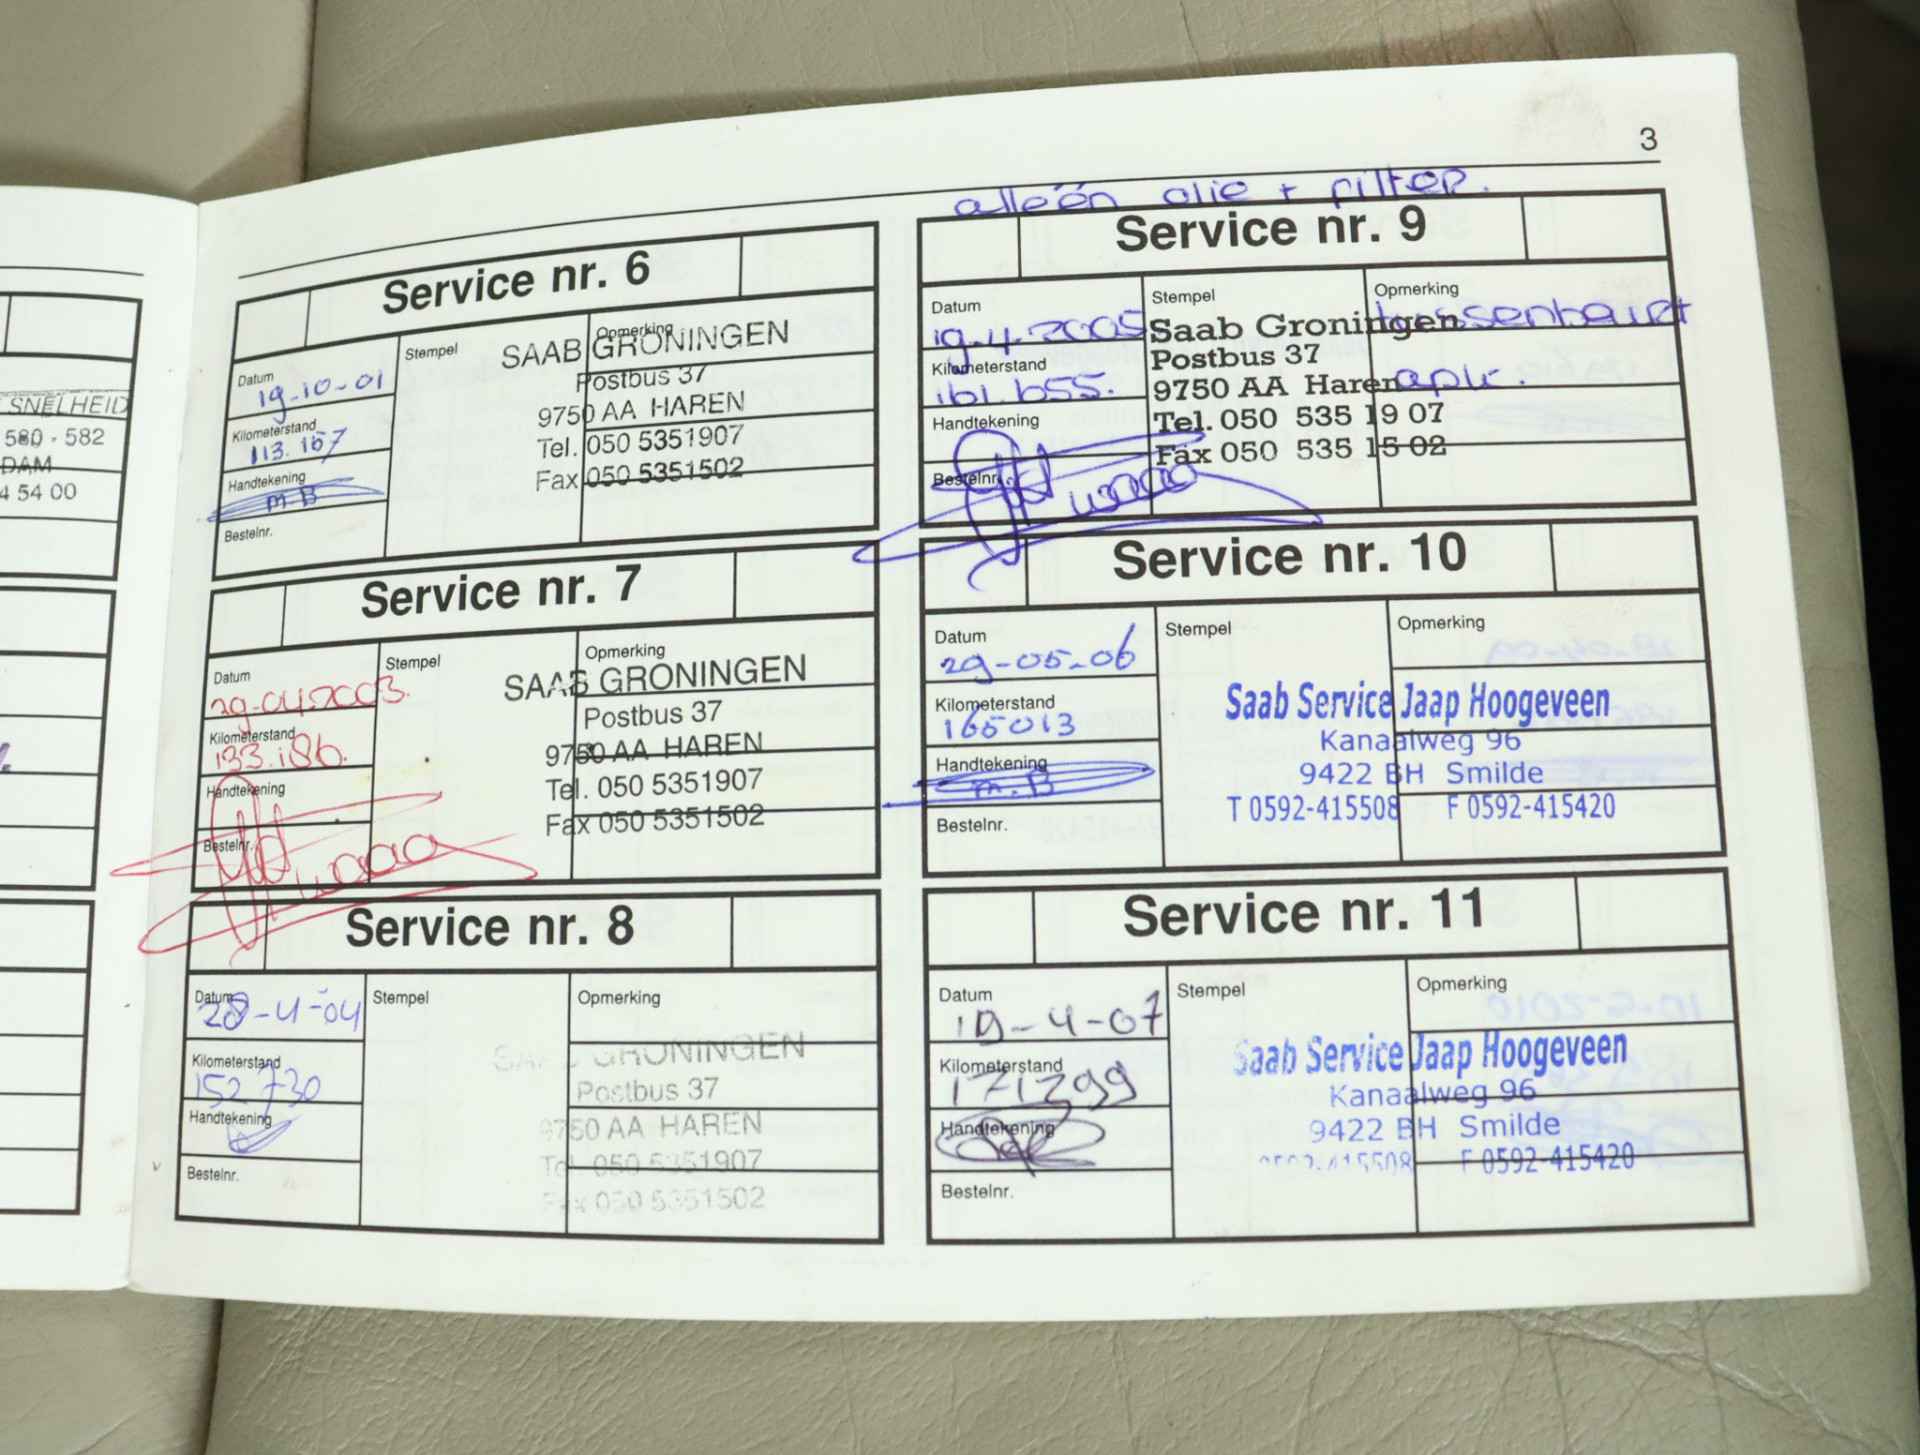 SNELHEID
580 - 582
DAM
4 54 00
3
alléén olie + filter.
Service nr. 6
Datum
19-10-01
Kilometerstand
113.167
Handtekening
m.B
Bestelnr.
Stempel
Opmerking
SAAB GRONINGEN
Postbus 37
9750 AA HAREN
Tel. 050 5351907
Fax 050 5351502
Service nr. 7
Datum
29-04-2003.
Kilometerstand
133.186.
Handtekening
Bestelnr.
Stempel
Opmerking
SAAB GRONINGEN
Postbus 37
9750 AA HAREN
Tel. 050 5351907
Fax 050 5351502
Service nr. 8
Datum
28-4-04
Kilometerstand
152730
Handtekening
Bestelnr.
Stempel
Opmerking
SAAB GRONINGEN
Postbus 37
9750 AA HAREN
Tel. 050 5351907
Fax 050 5351502
Service nr. 9
Datum
19-4-2005
Kilometerstand
161.655.
Handtekening
Bestelnr.
Stempel
Opmerking
tussenbeurt
apk.
Saab Groningen
Postbus 37
9750 AA Haren
Tel. 050 535 19 07
Fax 050 535 15 02
Service nr. 10
Datum
29-05-06
Kilometerstand
165013
Handtekening
m.B
Bestelnr.
Stempel
Opmerking
Saab Service Jaap Hoogeveen
Kanaalweg 96
9422 BH Smilde
T 0592-415508 F 0592-415420
Service nr. 11
Datum
19-4-07
Kilometerstand
171299
Handtekening
Bestelnr.
Stempel
Opmerking
Saab Service Jaap Hoogeveen
Kanaalweg 96
9422 BH Smilde
0592-415508 F 0592-415420